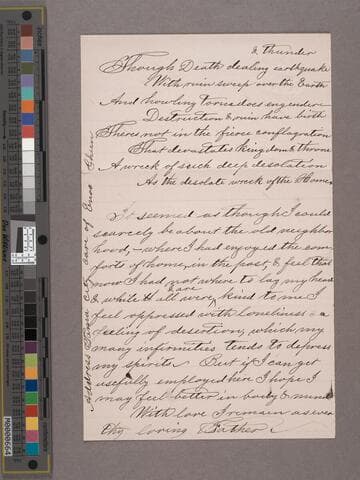 & thunder
Though Death dealing earthquake
With ruin sweep over the Earth
And howling tornadoes engender
Destruction & ruin have birth
Theres not in the fierce conflagration
That devastates kingdom & throne
A wreck of such deep desolation
As the desolate wreck of the Home,
It seemed as though I could
scarcely be about the old neighbor
hood, – where I had enjoyed the com
forts of home, in the past, & feel that
now I had not where to lay my head
& while all were kind to me I
are
feel oppressed with loneliness & a
feeling of desertion, which, my
many infirmities tends to depress
my spirits. But if I can get
usefully employed here I hope I
may feel better in body & mind
With love I remain as ever
thy loving Father
Address Iowa City care of Enos
M0000664